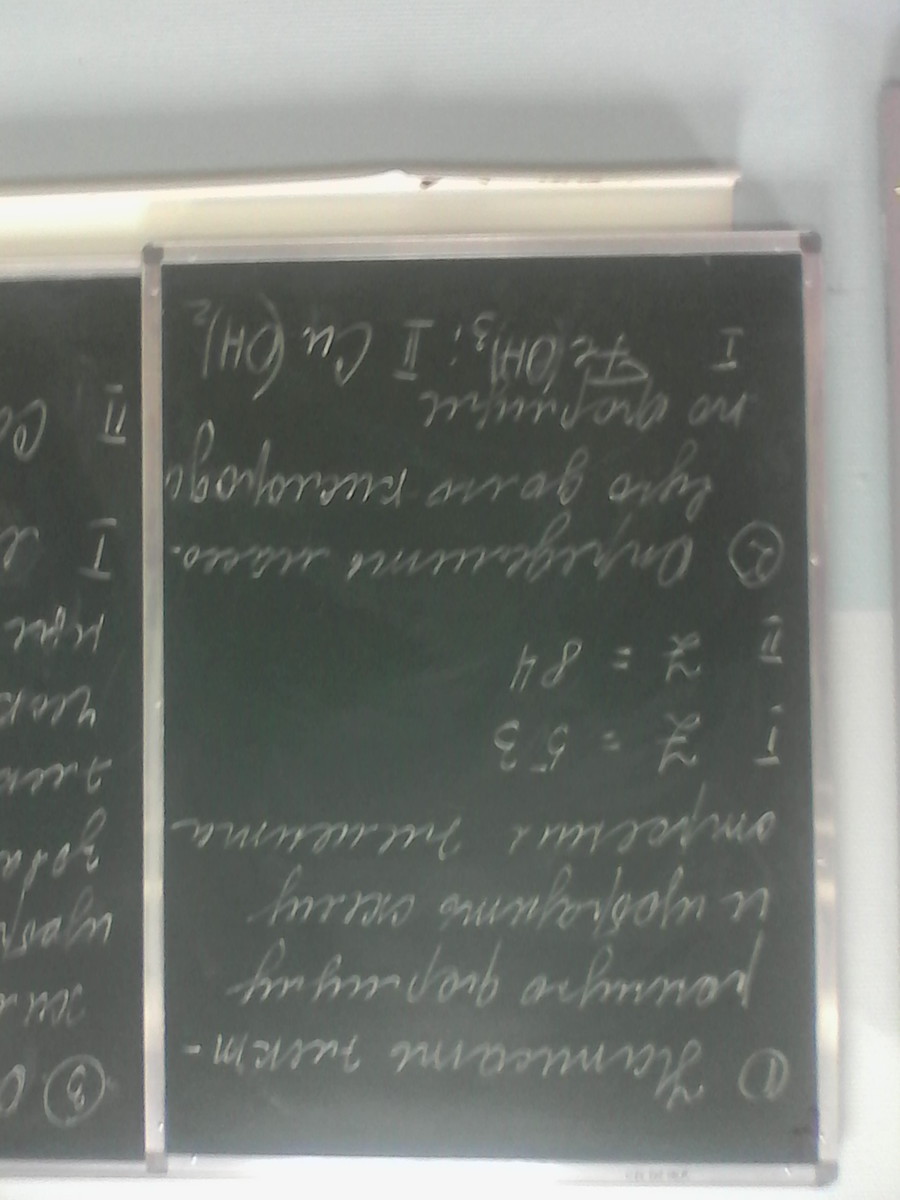 ① Написать элект-
ронную формулу
и изобразить схему
строения элемента
I Z = 53
II Z = 84
② Определить массо-
вую долю кислорода
по формуле
I Fe(OH)₃; II Cu(OH)₂
③ О
хим
изоб
элек
I
II Co